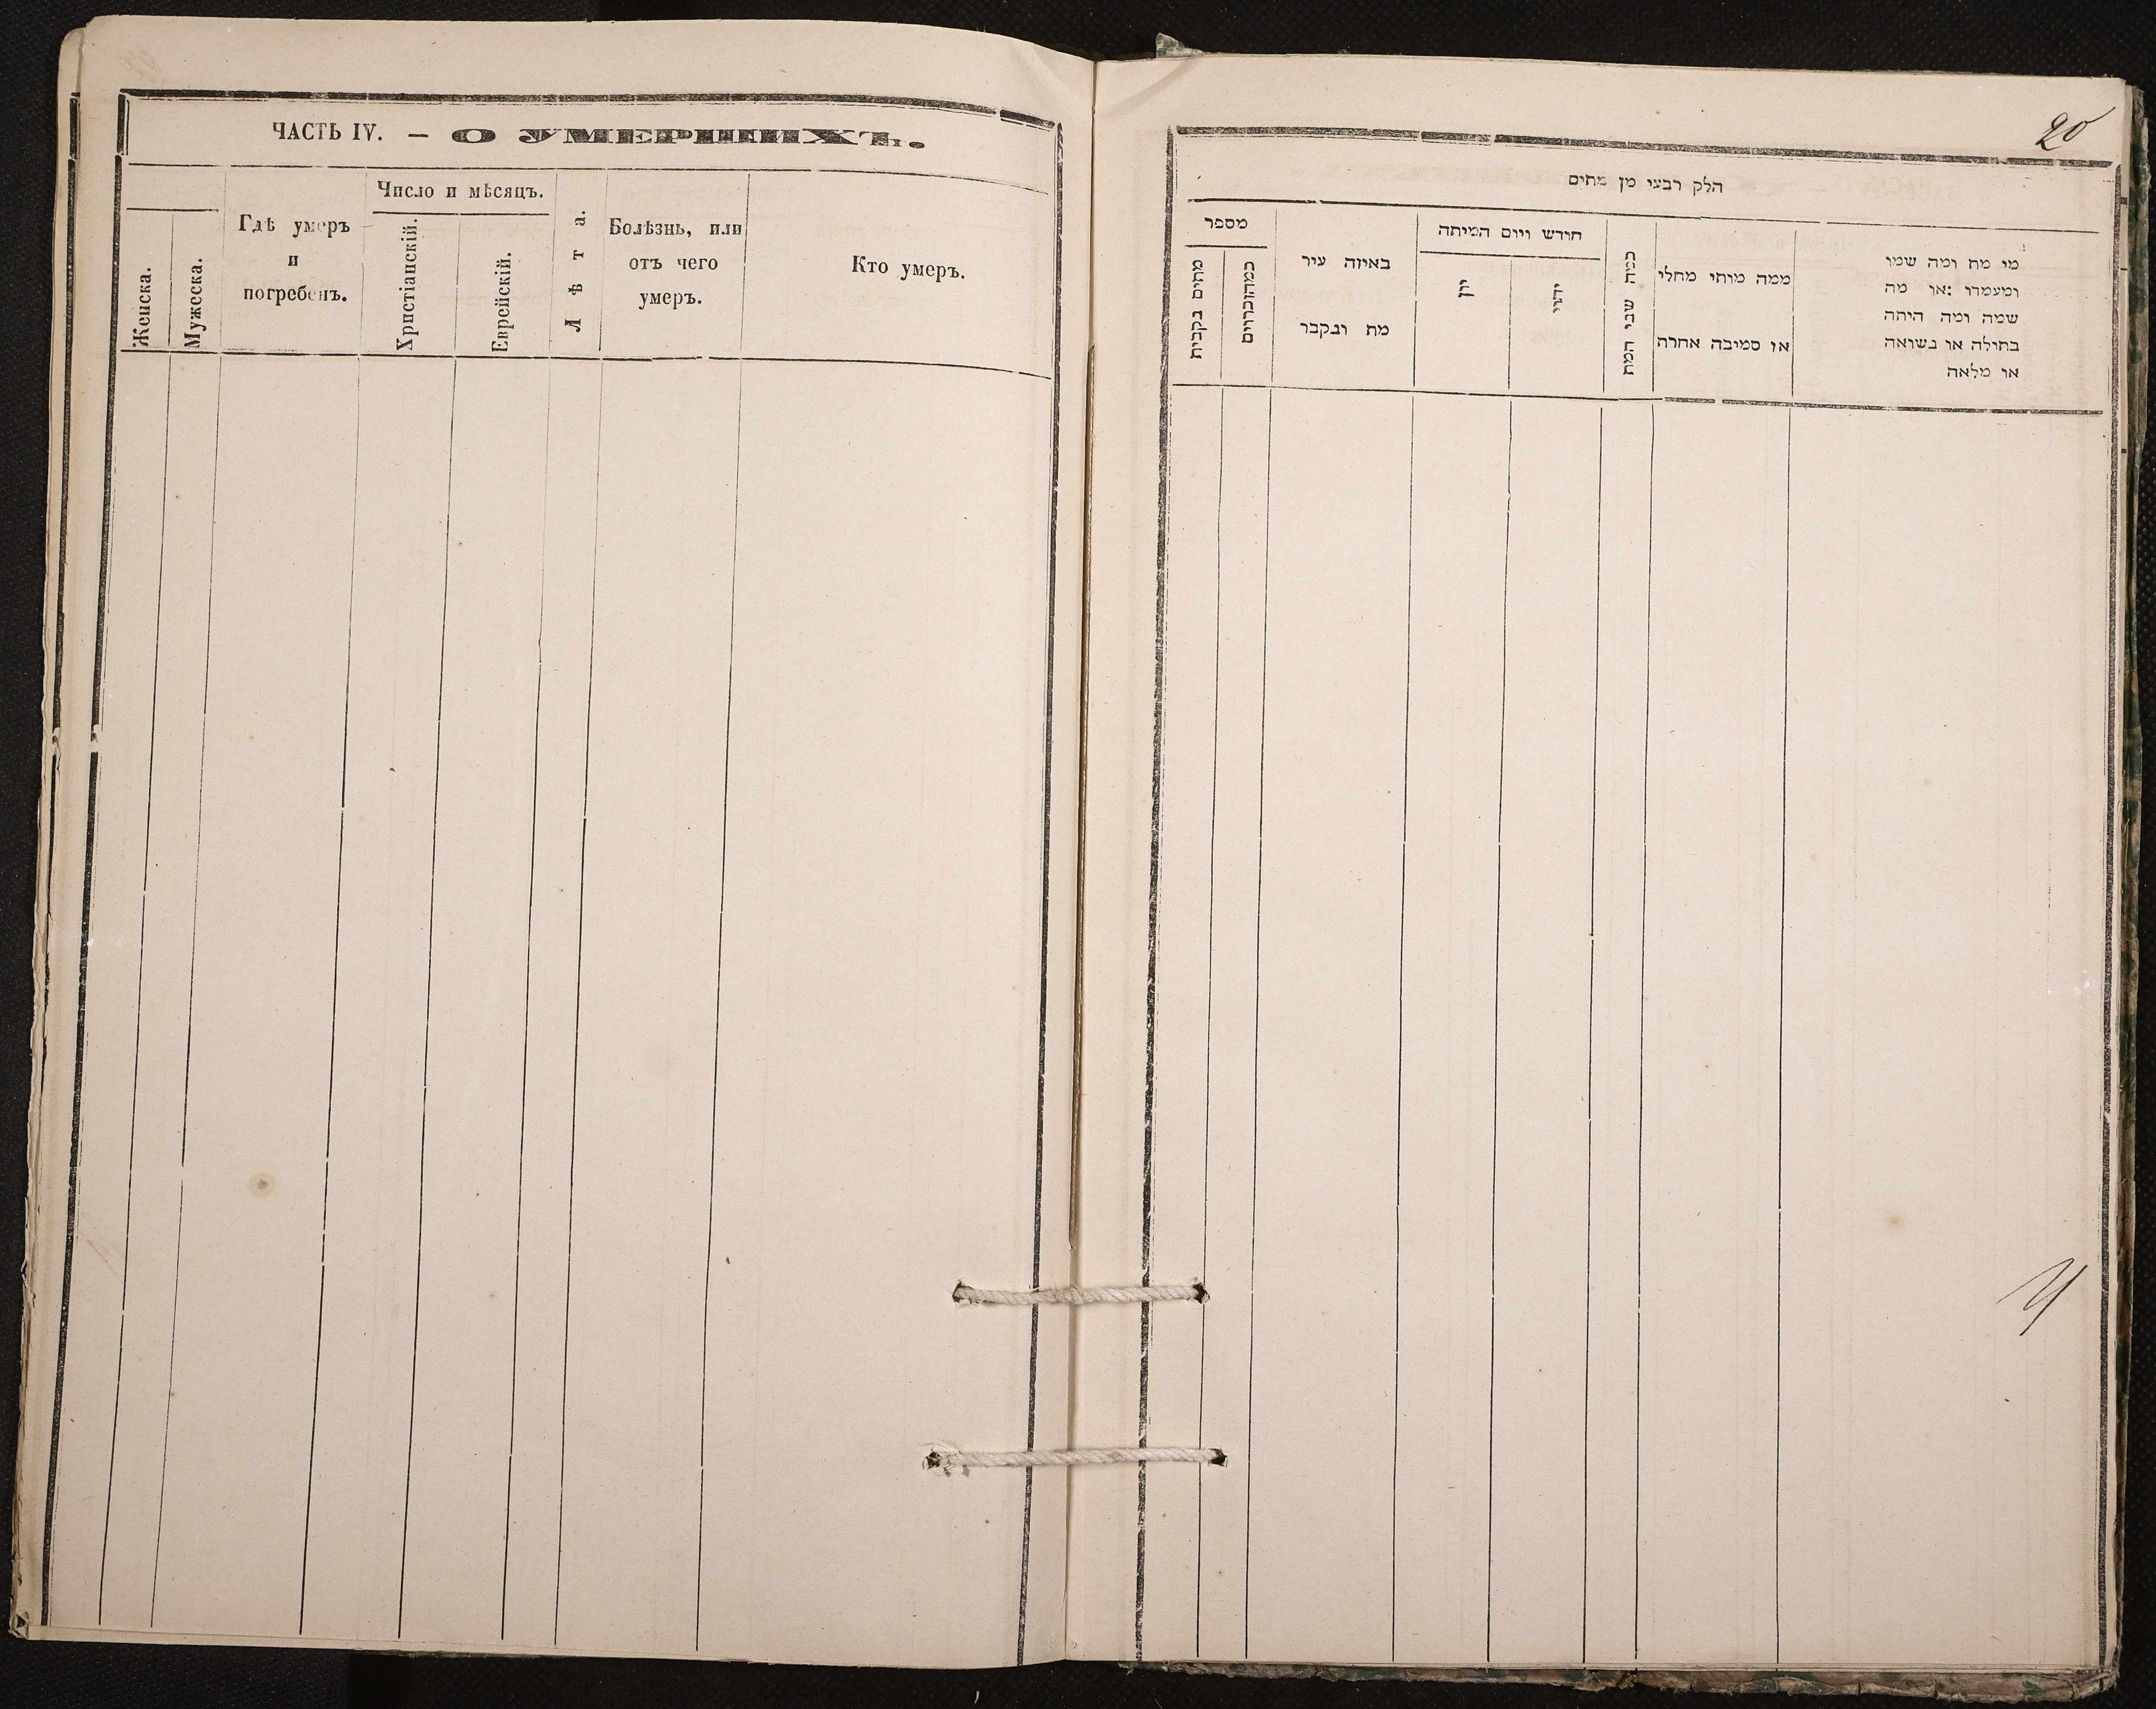 ЧАСТЬ IV. — О УМЕРШИХЪ.
Женска.
Мужеска.
Гдѣ умеръ
и
погребенъ.
Число и мѣсяцъ.
Христіанскій.
Еврейскій.
Лѣта.
Болѣзнь, или
отъ чего
умеръ.
Кто умеръ.
20
הלק רבעי מן מתים
מספר
באיזה עיר
מת ונקבר
חורש ויום המיתה
יון
יהוי
כמה שני המת
ממה מותי מחלי
או סמיבה אחרה
מי מת ומה שמו
ומעמדו :או מה
שמה ומה היתה
בתולה או נשואה
או מלאה